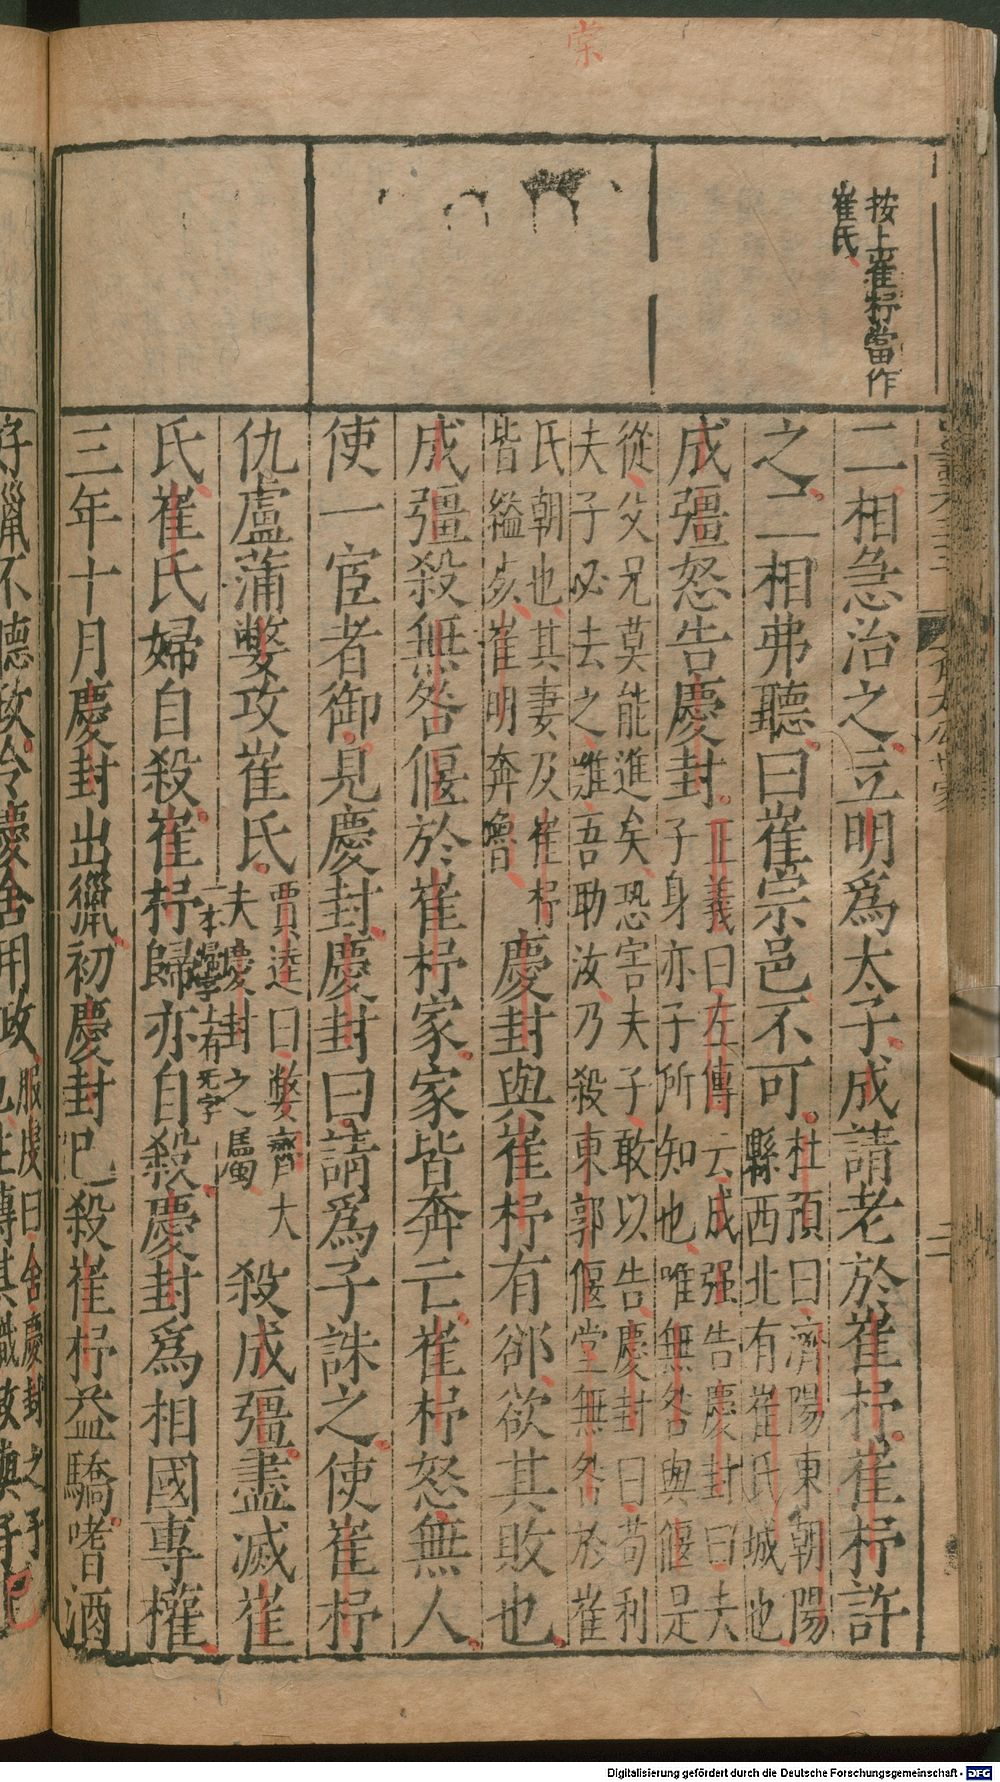 棠
按上崔杼當作
崔氏
二相急治之立明爲太子成請老於崔杼崔杼許
之二相弗聽曰崔宗邑不可
杜預曰濟陽東朝陽
縣西北有崔氏城也
成彊怒告慶封
正義曰左傳云成强告慶封曰夫
子身亦子所知也唯無咎與偃是
從父兄莫能進矣恐害夫子敢以告慶封曰苟利
夫子必去之難吾助汝乃殺東郭偃堂無咎於崔
氏朝也其妻及崔杼
皆縊死崔明奔魯
慶封與崔杼有郤欲其敗也
成彊殺無咎偃於崔杼家家皆奔亡崔杼怒無人
使一宦者御見慶封慶封曰請爲子誅之使崔杼
仇盧蒲嫳攻崔氏
賈逵曰嫳齊大
夫慶封之屬
殺成彊盡滅崔
氏崔氏婦自殺崔杼歸亦自殺慶封爲相國專權
一本歸字上有无字
三年十月慶封出獵初慶封已殺崔杼益驕嗜酒
好獵不聽政令慶舍用政
服虔曰舍慶封之子
Digitalisierung gefördert durch die Deutsche Forschungsgemeinschaft - DFG